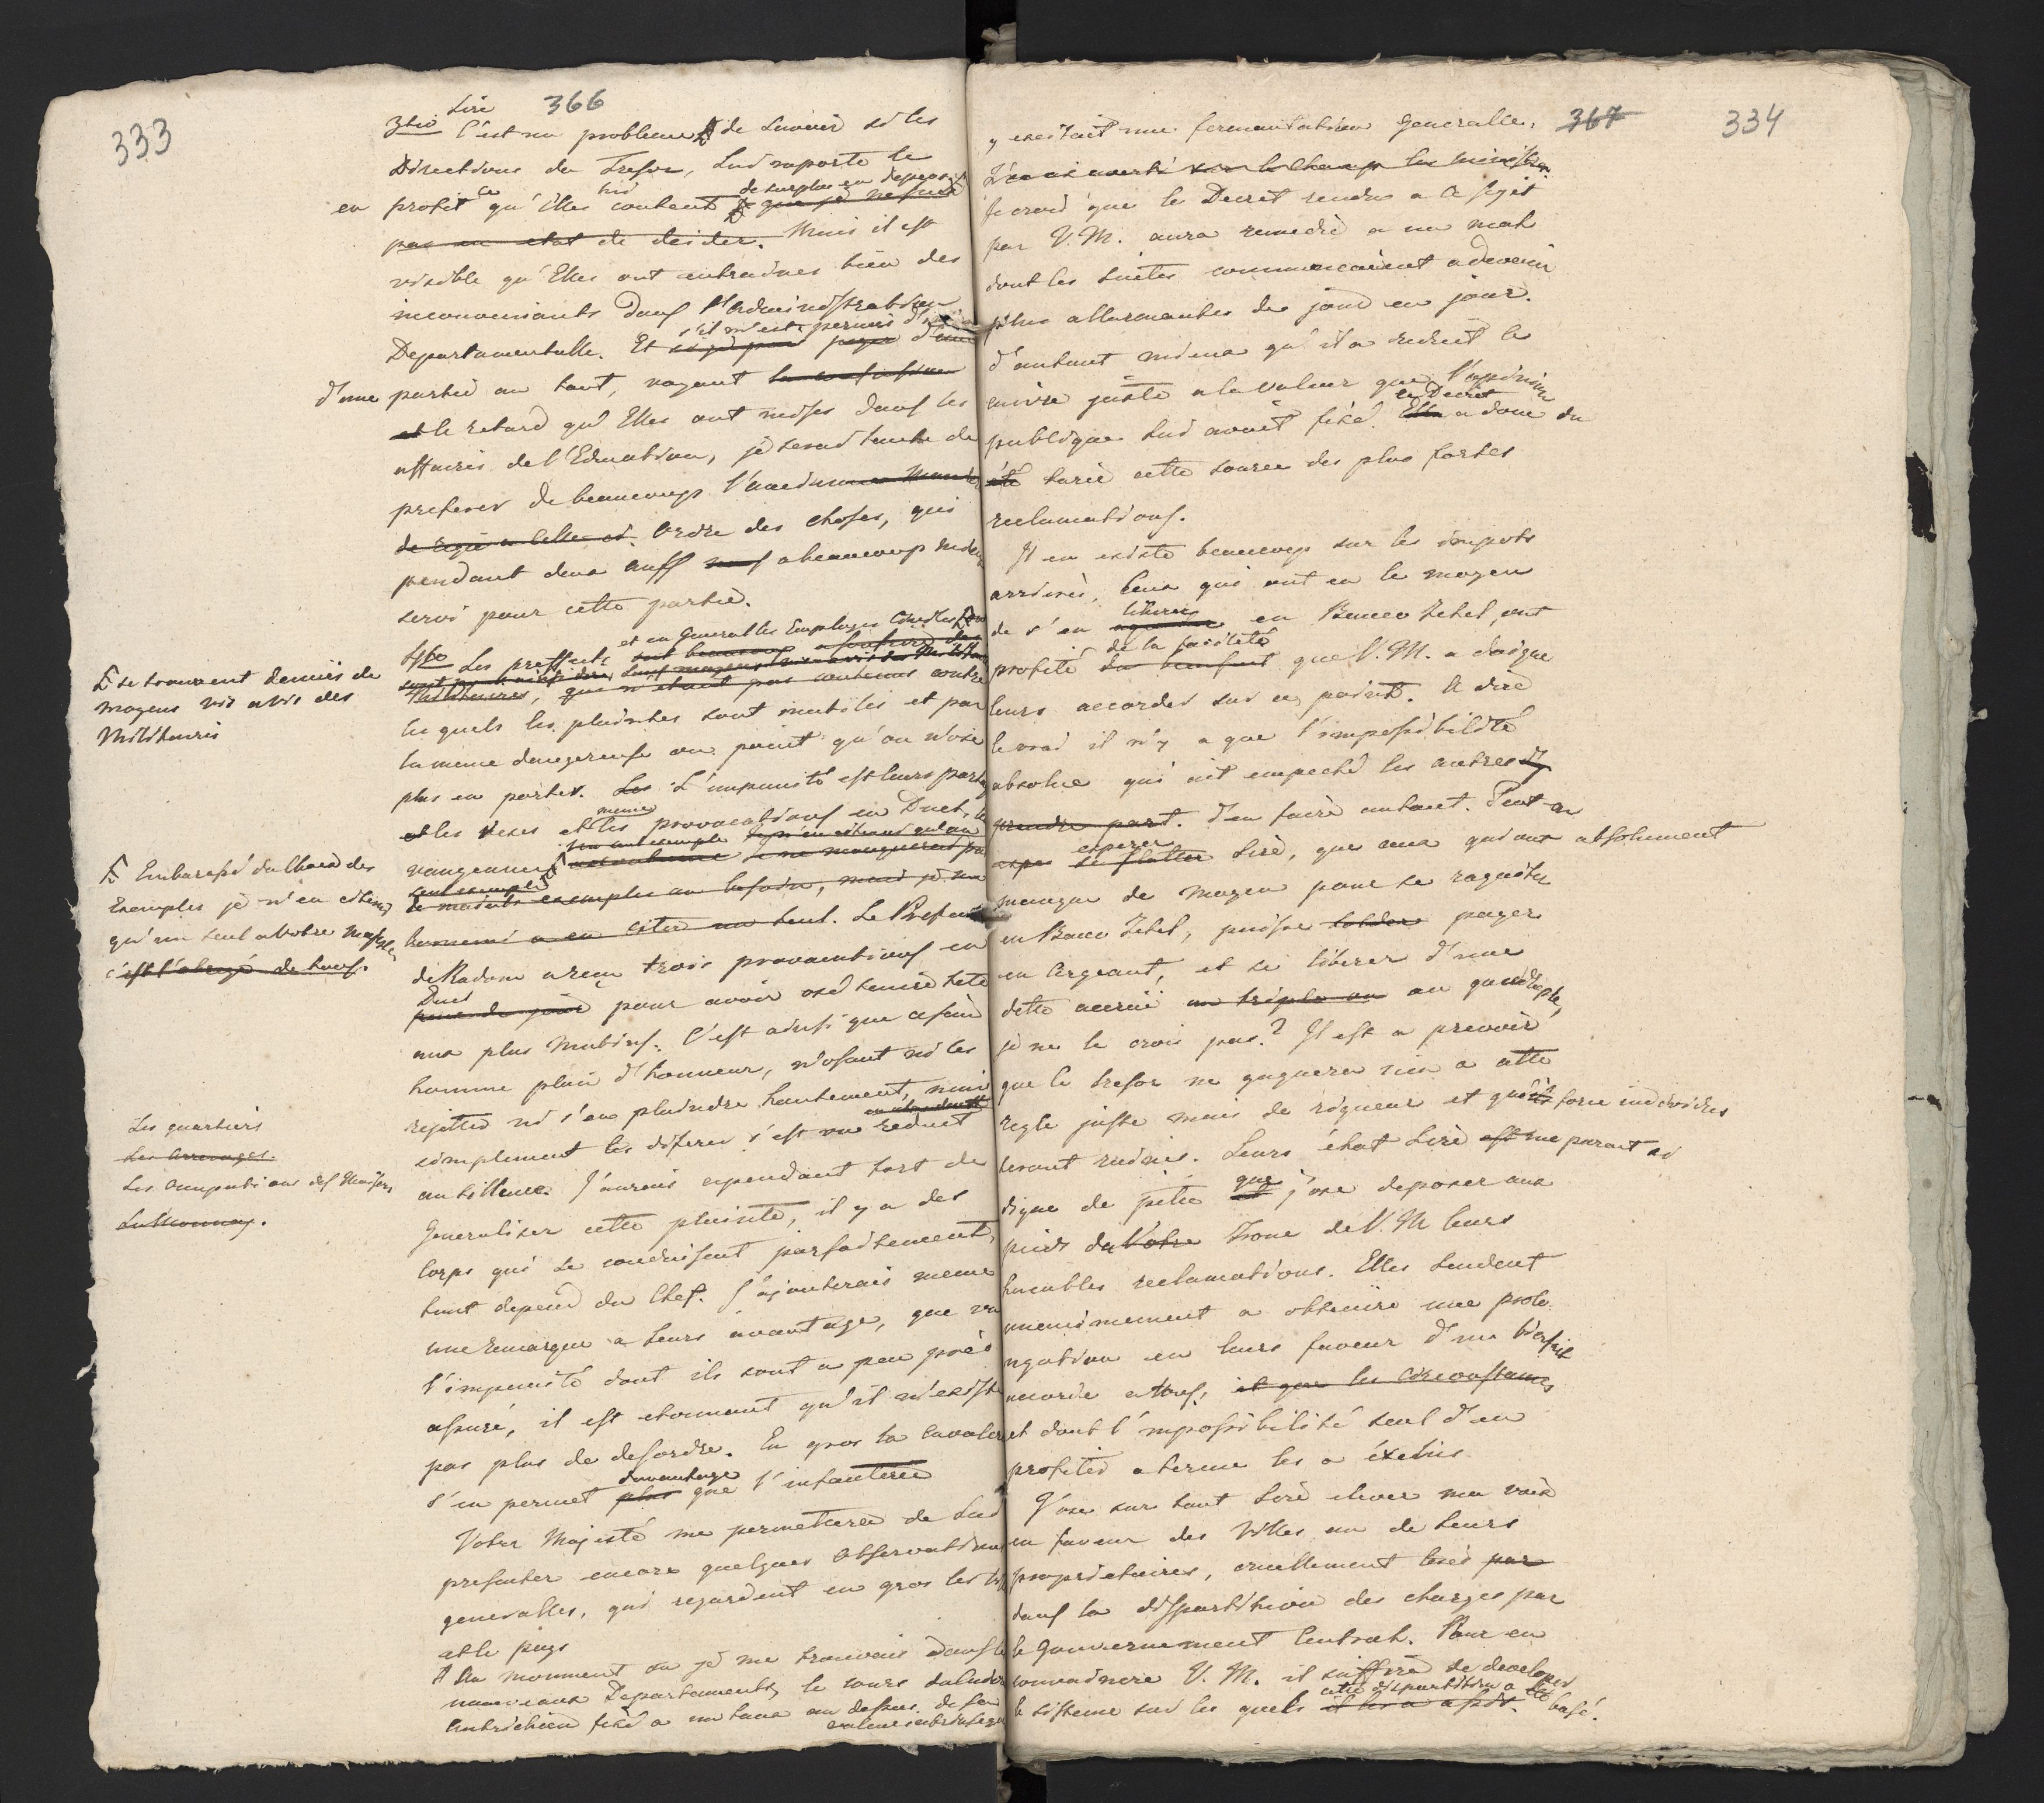 333
366
Sire
3tio C'est un probleme de savoir si les
Directions du Tresor, lui raporte le
en profit ce qu'Elles lui coutent de surplus en depense que je ne suis
pas en etat de deider. Mais il est
visible qu'Elles ont entrainés bien des
inconveniants dans l'Administration
Departamentalle. Et s'il m'est permis
d'une partie au tout, voyant la confusion
et le retard qu'Elles ont mises dans les
affaires de l'Education, je serai tenté de
preferer de beaucoup l'ancien
de regie a celle ci. Ordre des choses, qui
pendant deux anss a beaucoup mieux
servi pour cette partie.
4to Les preffects et en General les Employes Civiles
Militaires, que n'etant pas contenus contre
les quels les plaintes sont inutiles et par
la meme dangereuse au point qu'on n'ose
plus en porter. Les L'impunité est leurs partage
et les vexes et les meme provocations en Duel,
vangeances
seul exemple
de nommé a en citer un seul. Le Prefect
de Radom a reçu trois provocations en
Duel pour avoir osé tenire tete
aux plus Mutins. C'est ainsi que cesaid
homme plein d'honneur, n'osant ni les
rejetter ni s'en plaindre hautement, mais
simplement les diferer s'est vu reduit
au silence. J'aurais cependant tort de
Generaliser cette plainte, il y a des
Corps qui se conduisent parfaitement,
tout depend du Chef. J'ajouterais meme
une remarque a leurs avantage, que vu
l'impunité dont ils sont a peu près
assuré, il est etonnant qu'il n'existe
pas plus de desordre. En gros la Cavalerie
s'en permet plus davantage que l'infanterie
Votre Majesté me permettera de lui
presenter encore quelques observations
generalles, qui regardent en gros les
et le pays
Au momment ou je me trouvais dans le
nouveaux Departements, le cours du
Autrichien fixé a un taux au dessus de sa
valeur intrinseque
se trouvent denués de
moyens vis a vis des
Militaires
Embarassé du choix des
Exemples je n'en citerai
qu'un seul a Votre Majesté
c'est l'abregé de tous.
Les quartiers
Les arrerages.
Les Occupations des Maisons
334
367
y excitait une fermantation Generalle,
J'en ai averti sur le champ les ministres.
Je croid que le Decret rendus a ce sujet
par V. M. aura remedié a un mal
dont les suites commencaient a devenir
plus allarmantes de jour en jour.
d'autant mieux qu'il a reduit le
cuivre juste a la valeur que l'oppinion
publique lui avait fixé. Elle le Decret a donc du
été tarie cette source des plus fortes
reclamations.
Il en existe beaucoup sur les impots
arrierés, Ceux qui ont eu le moyen
de s'en liberer en Banco Zetel, ont
profité du bienfait de la facilité que V. M. a daigné
leurs accorder sur ce point. A dire
le vrai il n'y a que l'impossibilité
absolue qui ait empeché les autres d'y
prendre part. d'en faire autant. Peut-on
se flatter esperer Sire, que ceux qui ont absolument
manque de moyen pour se raquitter
en Banco Zetel, puisse solder payer
en Argeant, et se liberer d'une
dette accrue au triple ou au quadruple,
je ne le crois pas? Il est a prevoir
que le tresor ne gagnera rien a cette
regle juste mais de rigueur et que force individus
seront ruinés. Leurs état Sire est me parait si
digne de pitié que j'ose deposer aux
pieds du Votre Trone de V. M leurs
humbles reclamations. Elles tendent
unanimement a obtenire une prolo-
ngation en leurs faveur d'un bienfait
accordé a tous, et que les circonstances
et dont l'impossibilité seul d'en
profiter a terme les a éxclus.
J'ose sur tout Sire elever ma voix
en faveur des Villes ou de leurs
proprietaires, cruellement lesés par
dans la dispartition des charges par
le Gouvernement Central. Pour en
convaincre V. M. il suffira de developer
le sisteme sur les quels il les a assis. cette dispartition a été basé.